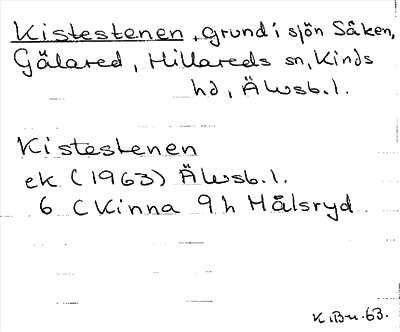 Kistestenen, grund i sjön Såken,
Gälared, Hillareds sn, Kinds
hd, Älvsb.l.
Kistestenen
ek (1963) Älvsb.l.
6 (Kinna 9h Hålsryd
K.Bn.63.